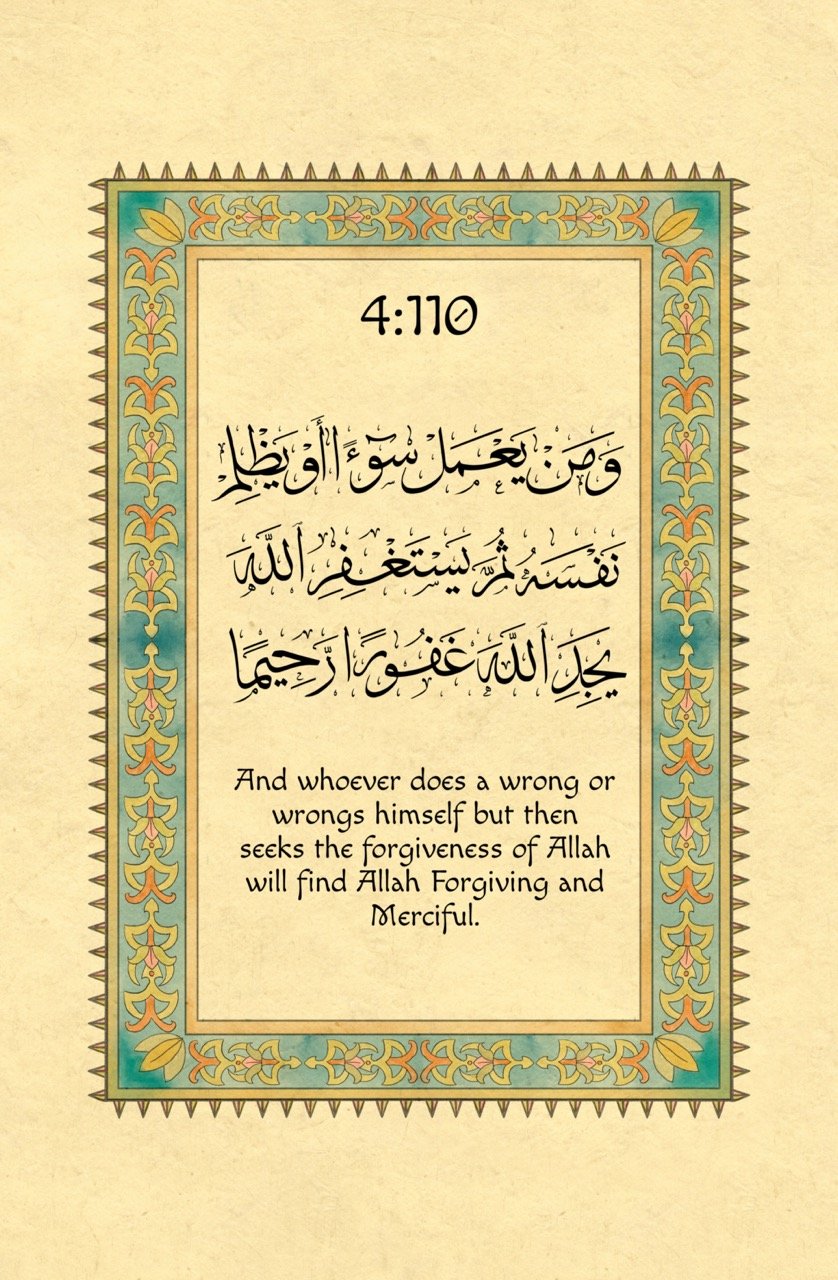 4:110
وَمَن يَعْمَلْ سُوٓءًا أَوْ يَظْلِمْ
نَفْسَهُۥ ثُمَّ يَسْتَغْفِرِ ٱللَّهَ
يَجِدِ ٱللَّهَ غَفُورًا رَّحِيمًا
And whoever does a wrong or
wrongs himself but then
seeks the forgiveness of Allah
will find Allah Forgiving and
Merciful.